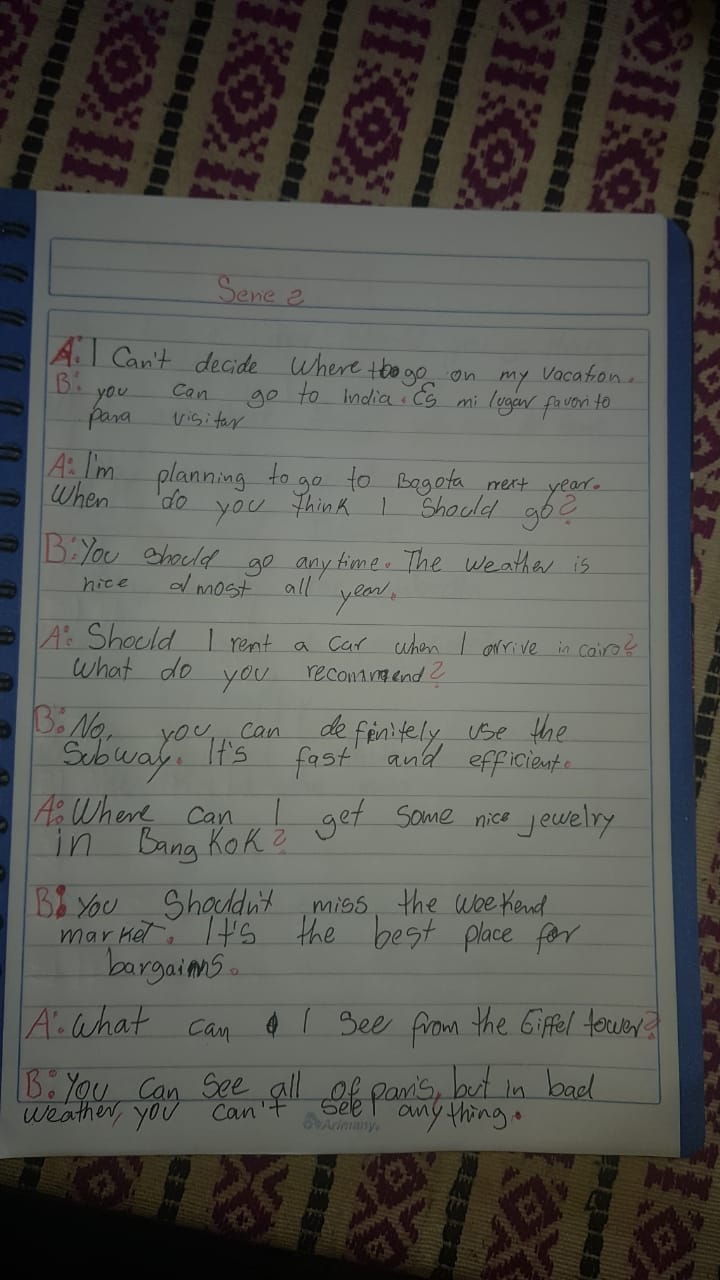 Serie 2
A: I Can't decide Where to go on my Vacation.
B: you can go to India. Es mi lugar favorito
para visitar
A: I'm planning to go to Bogota next year.
When do you think I Should go?
B: You should go anytime. The weather is
nice almost all year.
A: Should I rent a Car when I arrive in cairo?
What do you recommend?
B: No, you can definitely use the
Subway. It's fast and efficient.
A: Where can I get Some nice jewelry
in BangKoK?
B: You Shouldn't miss the weekend
market. It's the best place for
bargains.
A: What can I See from the Eiffel tower?
B: You Can See all of paris, but in bad
weather, you can't see anything.
Arimany.